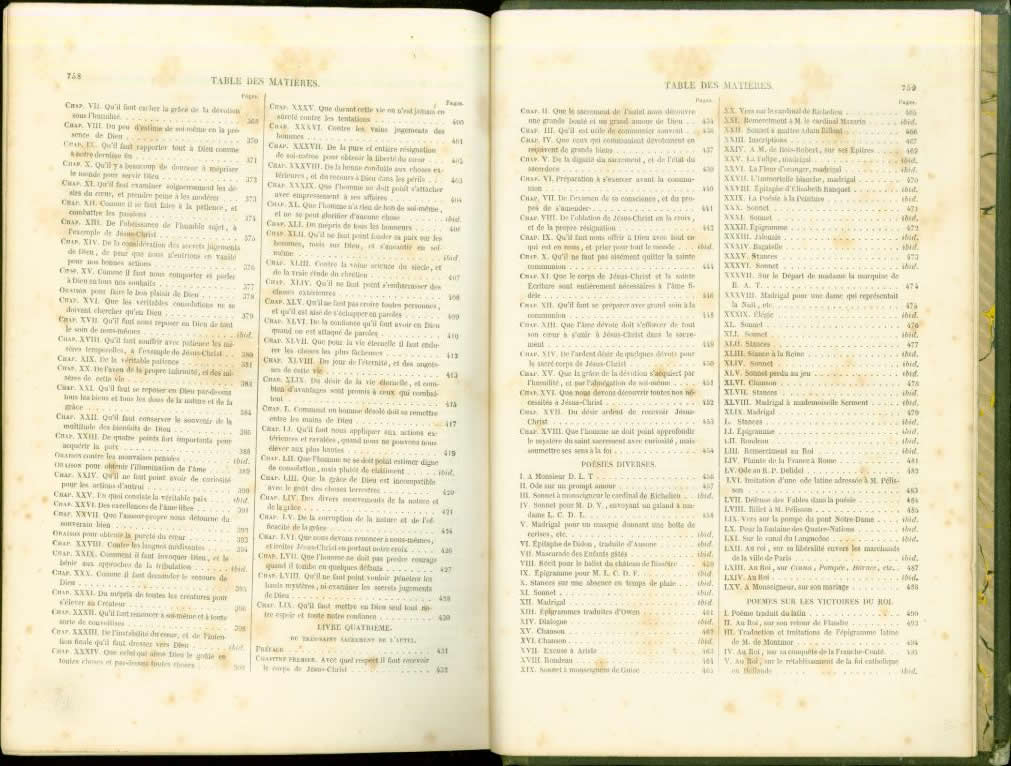 758
TABLE DES MATIÈRES.
Pages.
CHAP. VII. Qu'il faut cacher la grâce de la dévotion
sous l'humilité. 368
CHAP. VIII. Du peu d'estime de soi-même en la pré-
sence de Dieu 370
CHAP. IX. Qu'il faut rapporter tout à Dieu comme
à notre dernière fin 371
CHAP. X. Qu'il y a beaucoup de douceur à mépriser
le monde pour servir Dieu 372
CHAP. XI. Qu'il faut examiner soigneusement les dé-
sirs du cœur, et prendre peine à les modérer 373
CHAP. XII. Comme il se faut faire à la patience, et
combattre les passions 374
CHAP. XIII. De l'obéissance de l'humble sujet, à
l'exemple de Jésus-Christ 375
CHAP. XIV. De la considération des secrets jugements
de Dieu, de peur que nous n'entrions en vanité
pour nos bonnes actions 376
CHAP. XV. Comme il faut nous comporter et parler
à Dieu en tous nos souhaits 377
ORAISON pour faire le bon plaisir de Dieu 378
CHAP. XVI. Que les véritables consolations ne se
doivent chercher qu'en Dieu 379
CHAP. XVII. Qu'il faut nous reposer en Dieu de tout
le soin de nous-mêmes ibid.
CHAP. XVIII. Qu'il faut souffrir avec patience les mi-
sères temporelles, à l'exemple de Jésus-Christ 380
CHAP. XIX. De la véritable patience 381
CHAP. XX. De l'aveu de la propre infirmité, et des mi-
sères de cette vie
CHAP. XXI. Qu'il faut se reposer en Dieu par-dessus
tous les biens et tous les dons de la nature et de la
grâce 384
CHAP. XXII. Qu'il faut conserver le souvenir de la
multitude des bienfaits de Dieu 386
CHAP. XXIII. De quatre points fort importants pour
acquérir la paix 388
ORAISON contre les mauvaises pensées ibid.
ORAISON pour obtenir l'illumination de l'âme 389
CHAP. XXIV. Qu'il ne faut point avoir de curiosité
pour les actions d'autrui 390
CHAP. XXV. En quoi consiste la véritable paix ibid.
CHAP. XXVI. Des excellences de l'âme libre 391
CHAP. XXVII. Que l'amour-propre nous détourne du
souverain bien 392
ORAISON pour obtenir la pureté du cœur 393
CHAP. XXVIII. Contre les langues médisantes 394
CHAP. XXIX. Comment il faut invoquer Dieu, et le
bénir aux approches de la tribulation ibid.
CHAP. XXX. Comme il faut demander le secours de
Dieu 395
CHAP. XXXI. Du mépris de toutes les créatures pour
s'élever au Créateur 396
CHAP. XXXII. Qu'il faut renoncer à soi-même et à toute
sorte de convoitises 398
CHAP. XXXIII. De l'instabilité du cœur, et de l'inten-
tion finale qu'il faut dresser vers Dieu ibid.
CHAP. XXXIV. Que celui qui aime Dieu le goûte en
toutes choses et par-dessus toutes choses
Pages.
CHAP. XXXV. Que durant cette vie on n'est jamais en
sûreté contre les tentations 400
CHAP. XXXVI. Contre les vains jugements des
hommes 401
CHAP. XXXVII. De la pure et entière résignation
de soi-même pour obtenir la liberté du cœur 402
CHAP. XXXVIII. De la bonne conduite aux choses ex-
térieures, et du recours à Dieu dans les périls 403
CHAP. XXXIX. Que l'homme ne doit point s'attacher
avec empressement à ses affaires 404
CHAP. XL. Que l'homme n'a rien de bon de soi-même,
et ne se peut glorifier d'aucune chose ibid.
CHAP. XLI. Du mépris de tous les honneurs 406
CHAP. XLII. Qu'il ne faut point fonder sa paix sur les
hommes, mais sur Dieu, et s'anéantir en soi-
même ibid.
CHAP. XLIII. Contre la vaine science du siècle, et
de la vraie étude du chrétien 407
CHAP. XLIV. Qu'il ne faut point s'embarrasser des
choses extérieures 408
CHAP. XLV. Qu'il ne faut pas croire toutes personnes,
et qu'il est aisé de s'échapper en paroles 409
CHAP. XLVI. De la confiance qu'il faut avoir en Dieu
quand on est attaqué de paroles 410
CHAP. XLVII. Que pour la vie éternelle il faut endu-
rer les choses les plus fâcheuses 412
CHAP. XLVIII. Du jour de l'éternité, et des angois-
ses de cette vie 413
CHAP. XLIX. Du désir de la vie éternelle, et com-
bien d'avantages sont promis à ceux qui combat-
tent 415
CHAP. L. Comment un homme désolé doit se remettre
entre les mains de Dieu 417
CHAP. LI. Qu'il faut nous appliquer aux actions ex-
térieures et ravalées, quand nous ne pouvons nous
élever aux plus hautes 419
CHAP. LII. Que l'homme ne se doit point estimer digne
de consolation, mais plutôt de châtiment ibid.
CHAP. LIII. Que la grâce de Dieu est incompatible
avec le goût des choses terrestres 420
CHAP. LIV. Des divers mouvements de la nature et
de la grâce 421
CHAP. LV. De la corruption de la nature et de l'ef-
ficacité de la grâce 424
CHAP. LVI. Que nous devons renoncer à nous-mêmes,
et imiter Jésus-Christ en portant notre croix 426
CHAP. LVII. Que l'homme ne doit pas perdre courage
quand il tombe en quelques défauts 427
CHAP. LVIII. Qu'il ne faut point vouloir pénétrer les
hauts mystères, ni examiner les secrets jugements
de Dieu 428
CHAP. LIX. Qu'il faut mettre en Dieu seul tout no-
tre espoir et toute notre confiance 430
LIVRE QUATRIÈME.
DU TRÈS-SAINT SACREMENT DE L'AUTEL.
PRÉFACE 431
CHAPITRE PREMIER. Avec quel respect il faut recevoir
le corps de Jésus-Christ 432
TABLE DES MATIÈRES.
759
Pages.
CHAP. II. Que le sacrement de l'autel nous découvre
une grande bonté et un grand amour de Dieu 434
CHAP. III. Qu'il est utile de communier souvent 436
CHAP. IV. Que ceux qui communient dévotement en
reçoivent de grands biens 437
CHAP. V. De la dignité du sacrement, et de l'état du
sacerdoce 439
CHAP. VI. Préparation à s'exercer avant la commu-
nion 440
CHAP. VII. De l'examen de sa conscience, et du pro-
pos de s'amender 441
CHAP. VIII. De l'oblation de Jésus-Christ en la croix,
et de la propre résignation 442
CHAP. IX. Qu'il faut nous offrir à Dieu avec tout ce
qui est en nous, et prier pour tout le monde ibid.
CHAP. X. Qu'il ne faut pas aisément quitter la sainte
communion 444
CHAP. XI. Que le corps de Jésus-Christ et la sainte
Écriture sont entièrement nécessaires à l'âme fi-
dèle 446
CHAP. XII. Qu'il faut se préparer avec grand soin à la
communion 448
CHAP. XIII. Que l'âme dévote doit s'efforcer de tout
son cœur à s'unir à Jésus-Christ dans le sacre-
ment 449
CHAP. XIV. De l'ardent désir de quelques dévots pour
le sacré corps de Jésus-Christ 450
CHAP. XV. Que la grâce de la dévotion s'acquiert par
l'humilité, et par l'abnégation de soi-même 451
CHAP. XVI. Que nous devons découvrir toutes nos né-
cessités à Jésus-Christ 452
CHAP. XVII. Du désir ardent de recevoir Jésus-
Christ 453
CHAP. XVIII. Que l'homme ne doit point approfondir
le mystère du saint sacrement avec curiosité, mais
soumettre ses sens à la foi 454
POÉSIES DIVERSES.
I. A Monsieur D. L. T 456
II. Ode sur un prompt amour 457
III. Sonnet à monseigneur le cardinal de Richelieu ibid.
IV. Sonnet pour M. D. V., envoyant un galand à ma-
dame L. C. D. L. 458
V. Madrigal pour un masque donnant une boîte de
cerises, etc. ibid.
VI. Épitaphe de Didon, traduite d'Ausone ibid.
VII. Mascarade des Enfants gâtés ibid.
VIII. Récit pour le ballet du château de Bissêtre 459
IX. Épigramme pour M. L. C. D. F. ibid.
X. Stances sur une absence en temps de pluie ibid.
XI. Sonnet ibid.
XII. Madrigal ibid.
XIII. Épigrammes traduites d'Owen 461
XIV. Dialogue ibid.
XV. Chanson 462
XVI. Chanson ibid.
XVII. Excuse à Ariste 463
XVIII. Rondeau 464
XIX. Sonnet à monseigneur de Guise 465
Pages.
XX. Vers sur le cardinal de Richelieu 465
XXI. Remerciment à M. le cardinal Mazarin ibid.
XXII. Sonnet à maître Adam Billaut 466
XXIII. Inscriptions 467
XXIV. A M. de Bois-Robert, sur ses Épîtres 469
XXV. La Tulipe, madrigal ibid.
XXVI. La Fleur d'oranger, madrigal ibid.
XXVII. L'immortelle blanche, madrigal 470
XXVIII. Épitaphe d'Élisabeth Ranquet ibid.
XXIX. La Poésie à la Peinture ibid.
XXX. Sonnet 471
XXXI. Sonnet ibid.
XXXII. Épigramme 472
XXXIII. Jalousie ibid.
XXXIV. Bagatelle ibid.
XXXV. Stances 473
XXXVI. Sonnet ibid.
XXXVII. Sur le Départ de madame la marquise de
B. A. T. 474
XXXVIII. Madrigal pour une dame qui représentait
la Nuit, etc. 475
XXXIX. Élégie ibid.
XL. Sonnet 476
XLI. Sonnet ibid.
XLII. Stances 477
XLIII. Stance à la Reine ibid.
XLIV. Sonnet ibid.
XLV. Sonnet perdu au jeu ibid.
XLVI. Chanson 478
XLVII. Stances ibid.
XLVIII. Madrigal à mademoiselle Serment ibid.
XLIX. Madrigal 479
L. Stances ibid.
LI. Épigramme ibid.
LII. Rondeau ibid.
LIII. Remerciment au Roi ibid.
LIV. Plainte de la France à Rome 481
LV. Ode au R. P. Delidel 482
LVI. Imitation d'une ode latine adressée à M. Pélis-
son 483
LVII. Défense des Fables dans la poésie 484
LVIII. Billet à M. Pélisson 485
LIX. Vers sur la pompe du pont Notre-Dame ibid.
LX. Pour la fontaine des Quatre-Nations ibid.
LXI. Sur le canal du Languedoc ibid.
LXII. Au roi, sur sa libéralité envers les marchands
de la ville de Paris ibid.
LXIII. Au Roi, sur Cinna, Pompée, Horace, etc. 487
LXIV. Au Roi ibid.
LXV. A Monseigneur, sur son mariage 488
POËMES SUR LES VICTOIRES DU ROI.
I. Poëme traduit du latin 490
II. Au Roi, sur son retour de Flandre 493
III. Traduction et imitations de l'épigramme latine
de M. de Montmor 494
IV. Au Roi, sur sa conquête de la Franche-Comté 495
V. Au Roi, sur le rétablissement de la foi catholique
en Hollande ibid.